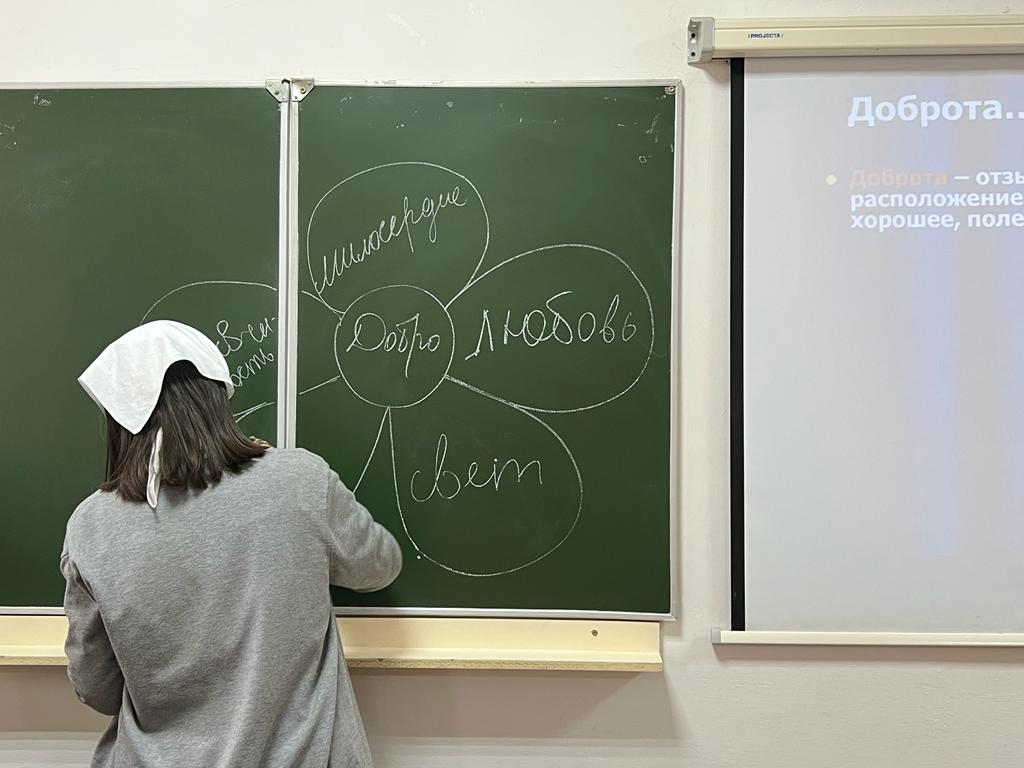 милосердие
Добро
любовь
свет
PROJECTA
Доброта..
Доброта – отзы
расположение
хорошее, поле